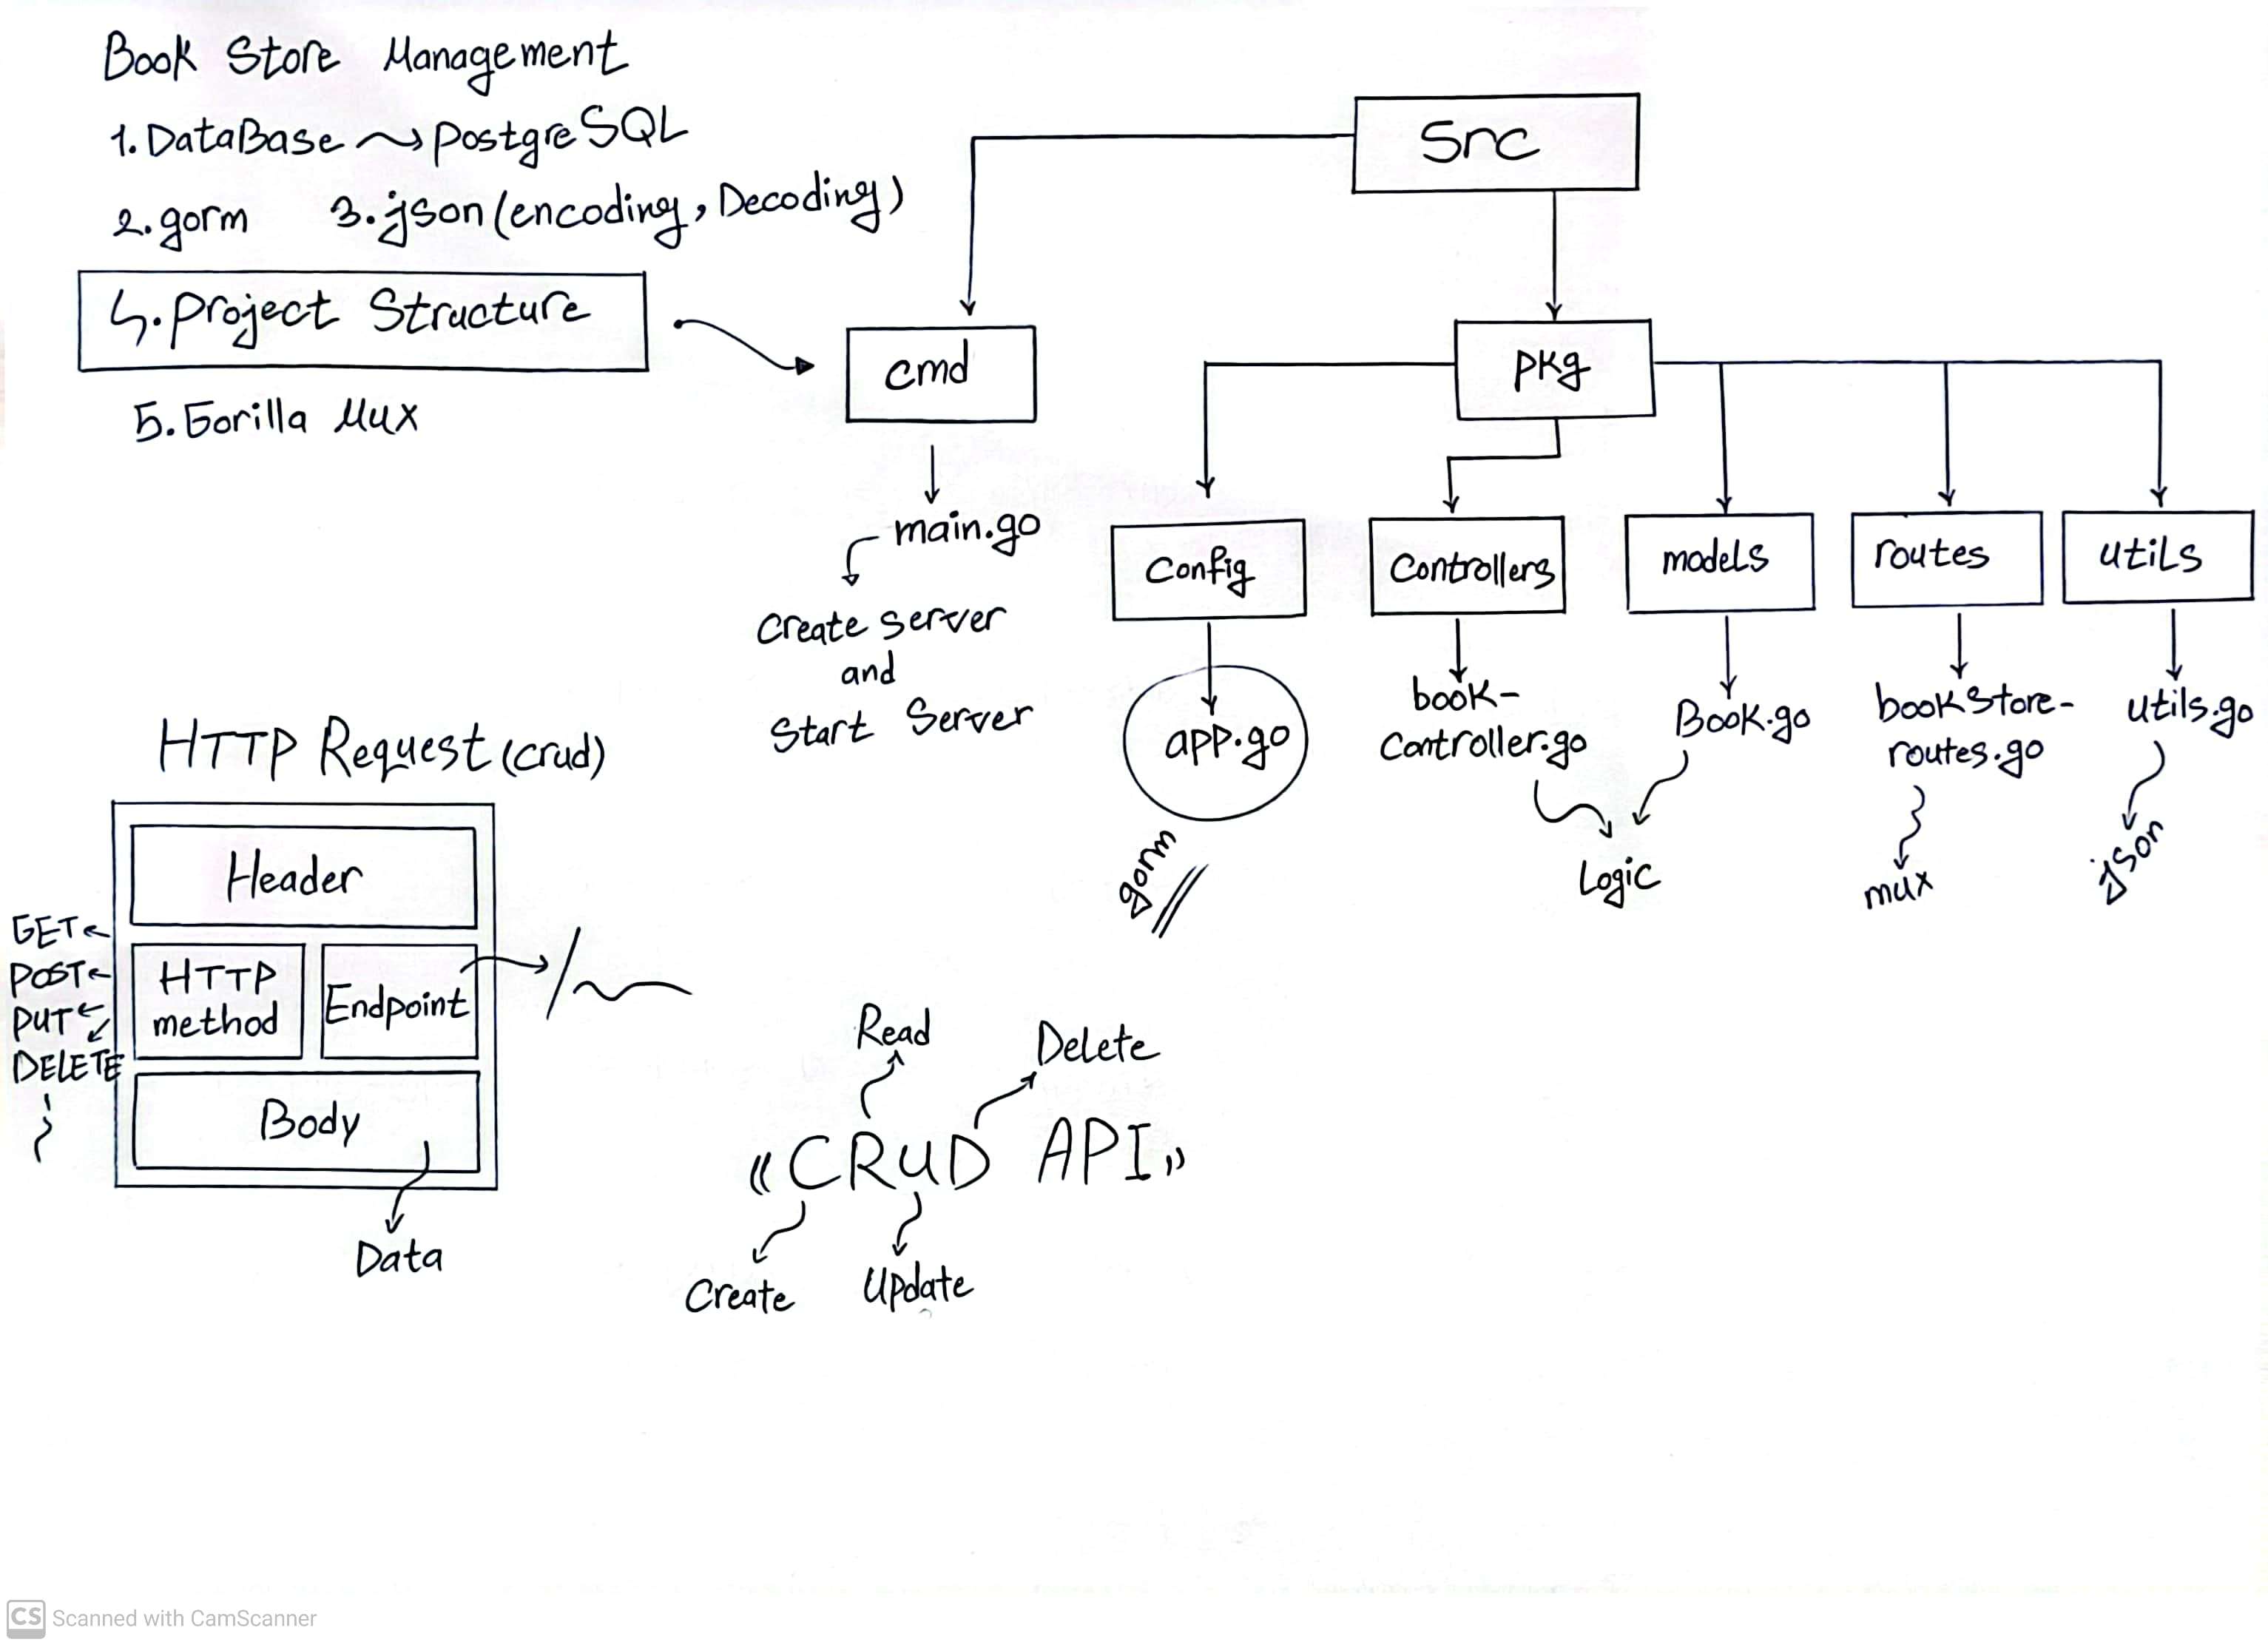 Book Store Management
1. DataBase PostgreSQL
2. gorm 3. json (encoding, Decoding)
4. Project Structure
5. Gorilla Mux
Src
cmd
pkg
main.go
Create server
and
Start Server
Config
Controllers
models
routes
utils
app.go
gorm
book-
Controller.go
Book.go
Logic
bookStore-
routes.go
mux
utils.go
json
HTTP Request (crud)
Header
GET
POST
PUT
DELETE
HTTP
method
Endpoint
/
Body
Data
Read
Delete
«CRUD API»
Create
Update
CS Scanned with CamScanner